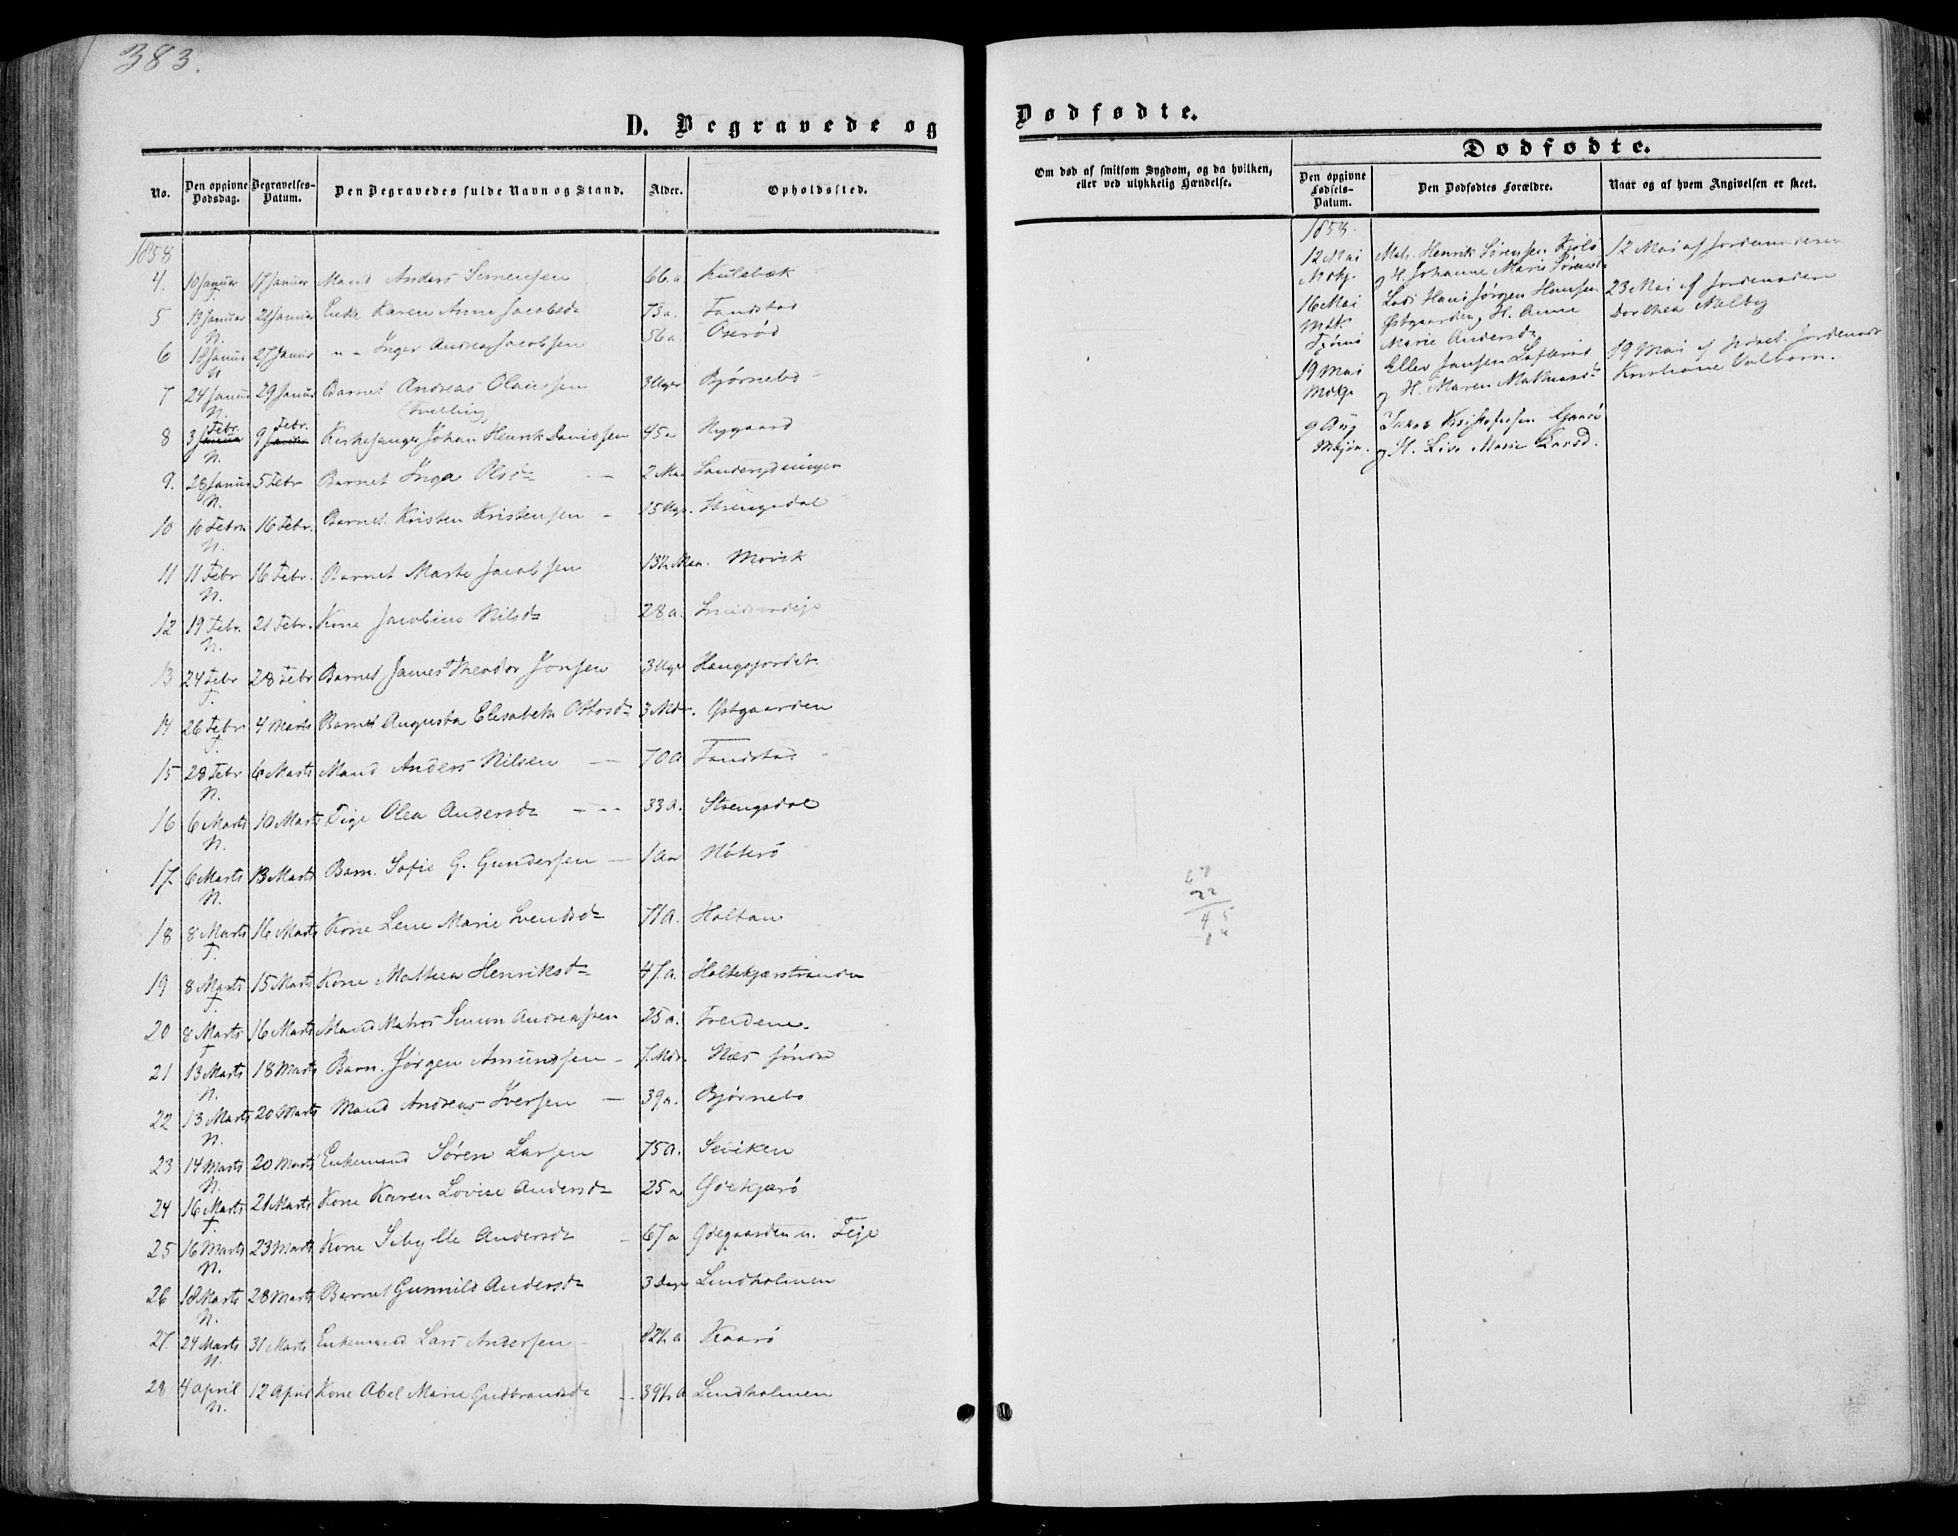 383.
D. Begravede og
No. Den opgivne Dødsdag. Begravelses-Datum. Den Begravedes fulde Navn og Stand. Alder. Opholdssted.
1858
4. 10 Januar 17 Januar Mand Anders Simensen 66 a Kulebæk
T.
5 13 Januar 21 Januar Enke Karen Anne Jacobsd 73 a. Tandstad
N.
6 18 Januar 27 Januar " - Inger Andrea Jacobsen 56 a. Oserød
N
7 24 Januar 29 Januar Barnet Andreas Olaissen 3 Uger Bjørnebo
N. (Tvilling)
Febr. Febr.
8 3 Januar 9 Januar Kirkesanger Johan Henrik Davidsen 45 a Rygaard
N.
9. 28 Januar 5 Febr Barnet Inga Olsd - 2 Ma.
N.
10 10 Febru 16 Febr. Barnet Kristen Kristensen - 15 Uger Strengsdal
N.
11 11 Febr 16 Febr. Barnet Marte Jacobsen 13½ Maa. Movik
N.
12 19 Febr. 21 Febr. Kone Jacobine Nilsd 28 a.
N.
13 24 Febr 28 Febr Barnet James Theodor Jonsen 3 Uger Haugsjordet
T.
14 26 Febr 4 Marts Barnet Augusta Elisabeth Ottosd 3 Mdr. Østgaarden
T.
15 28 Febr 6 Marts Mand Anders Nilsen - 70 a Tandstad
N.
16 6 Marts 10 Marts Pige Olea Andersd - - 33 a. Strengsdal
N.
17 6 Marts 13 Marts Barn. Sofie G. Gundersen - 1 Aar Nøterø
N.
18 8 Marts 16 Marts Kone Lene Marie Svendsd 71 a. Holtan
T.
19 8 Marts 15 Marts Kone Mathea Henriksd 47 a. Holtekjærstranden
T.
20 8 Marts 16 Marts Mand Matros Simon Andreassen 25 a. Treidene.
T
21 13 Marts 18 Marts Barn. Jørgen Amundsen - 7 Mdr. Næs søndre
N.
22 13 Marts 20 Marts Mand Andreas Iversen - 39 a. Bjørnebo
N.
23 14 Marts 20 Marts Enkemand Søren Larsen 75 a. Seviken
N.
24 16 Marts 21 Marts Kone Karen Lovise Andersd 25 a Ødekjærø
T.
25 16 Marts 23 Marts Kone Sibylle Andersd - 67 a Ødegaarden u. Teje
N.
26 18 Marts 28 Marts Barnet Gunnild Andersd 3 Dage Lindholmen
N.
27. 24 Marts 31 Marts Enkemand Lars Andersen - 82½ a Kaarø
N.
28 4 April 12 April Kone Abel Marie Gudbrandsd - 39½ a Lindholmen
N.
Dødfødte.
Om død af smitsom Sygdom, og da hvilken, eller ved ulykkelig Hændelse.
Dødfødte.
Den opgivne Fødsels-Datum. Den Dødfødtes Forældre. Naar og af hvem Angivelsen er skeet.
1858.
12 Mai Mat. Henrik Sørensen Kjøle 12 Mai af Jordemoderen
Mdkj. og H. Johanne Marie Sørensd
16 Mai Lods Hans Jørgen Hansen 23 Mai af Jordemoder
Mdk Østgaarden og H. Anne Dorthea Melby
Tjømø Marie Andersd
19 Mai Ellev Jansen Lofterød 19 Mai af Jordemoder
Mdkj. og H. Maren Mathiasd Kristiane Valborn.
9 Aug Jakob Kristofersen Gaarø
og H. Lise Marie Larsd.
67
22
45